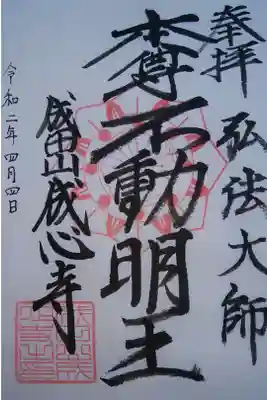 奉拝 弘法大師
本尊不動明王
成田山成心寺
令和二年四月四日